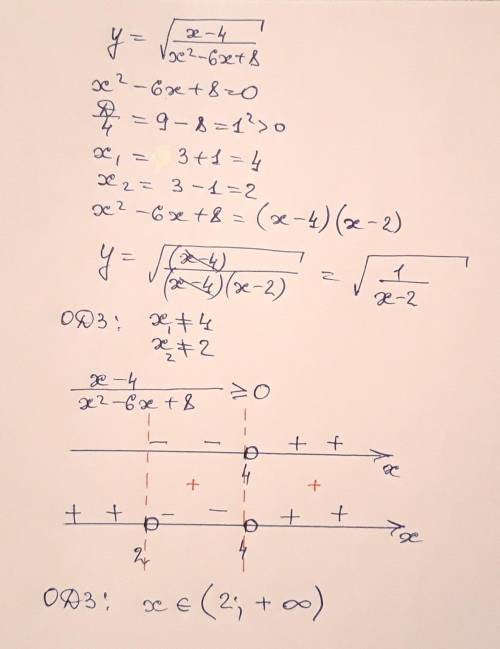 y = √((x-4)/(x²-6x+8))
x² - 6x + 8 = 0
Д/4 = 9 - 8 = 1² > 0
x₁ = 3 + 1 = 4
x₂ = 3 - 1 = 2
x² - 6x + 8 = (x-4)(x-2)
y = √((x-4)/((x-4)(x-2))) = √(1/(x-2))
ОДЗ: x₁ ≠ 4
x₂ ≠ 2
(x-4)/(x²-6x+8) ≥ 0
- - + +
4 x
+ +
+ + - - + +
2 4 x
ОДЗ: x ∈ (2; +∞)